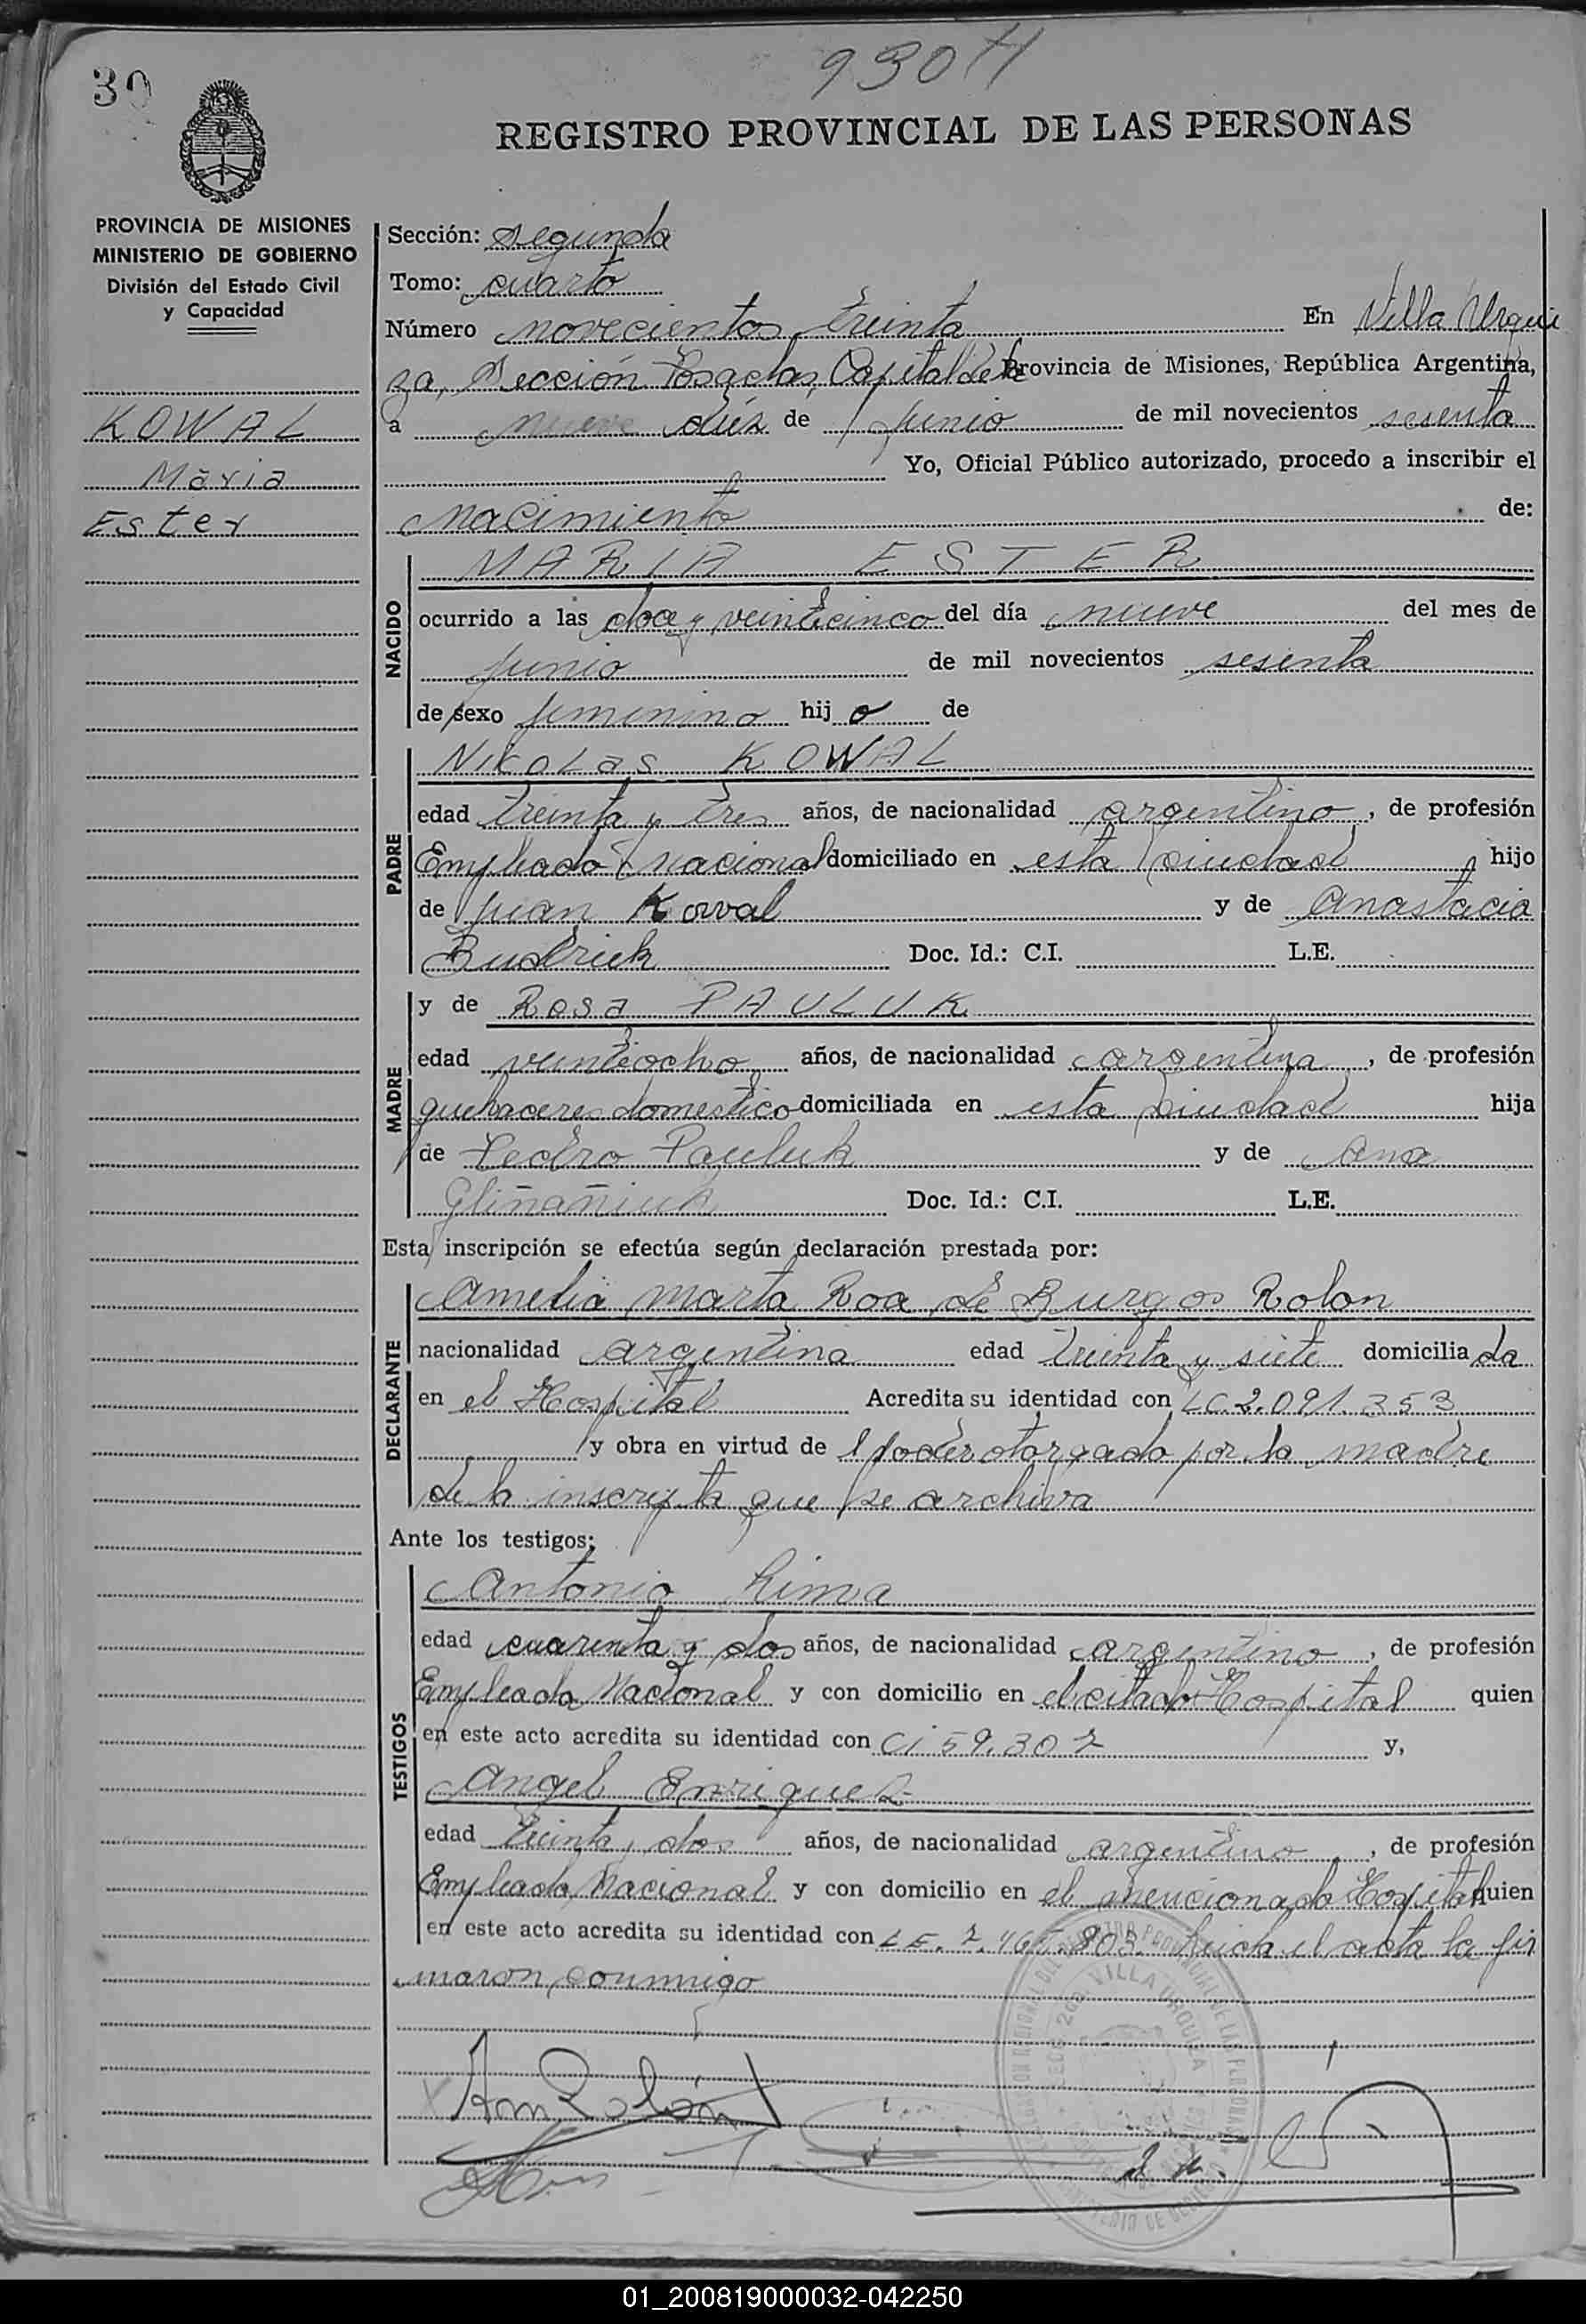 30
930 H
REGISTRO PROVINCIAL DE LAS PERSONAS
PROVINCIA DE MISIONES
MINISTERIO DE GOBIERNO
División del Estado Civil
y Capacidad
KOWAL
Maria
Ester
Sección: segunda
Tomo: cuarto
Número novecientos treinta En Villa Urqui
za, Sección Posadas, Capital de la Provincia de Misiones, República Argentina,
a nueve diez de junio de mil novecientos sesenta
Yo, Oficial Público autorizado, procedo a inscribir el
Nacimiento de:
NACIDO
MARIA ESTER
ocurrido a las doce y veinticinco del día nueve del mes de
junio de mil novecientos sesenta
de sexo femenino hij a de
PADRE
NIKOLAS KOWAL
edad treinta y tres años, de nacionalidad argentino, de profesión
Empleado Nacional domiciliado en esta ciudad hijo
de Juan Kowal y de Anastacia
Budriek Doc. Id.: C.I. L.E.
MADRE
y de Rosa PAULUK
edad veintiocho años, de nacionalidad argentina, de profesión
quehaceres domestico domiciliada en esta ciudad hija
de Pedro Pauluk y de Ana
Gliñañiuk Doc. Id.: C.I. L.E.
Esta inscripción se efectúa según declaración prestada por:
DECLARANTE
Amelia Marta Roa de Burgos Rolon
nacionalidad argentina edad treinta y siete domicilia da
en el Hospital Acredita su identidad con LC. 2.091.353
y obra en virtud de l poder otorgado por la madre
de la inscripta que se archiva
Ante los testigos:
TESTIGOS
Antonio Rima
edad cuarenta y dos años, de nacionalidad argentino, de profesión
Empleado Nacional y con domicilio en el citado Hospital quien
en este acto acredita su identidad con CI 59.302 y,
Angel Enriquez
edad treinta y dos años, de nacionalidad argentino, de profesión
Empleado Nacional y con domicilio en el mencionado Hospital quien
en este acto acredita su identidad con LE. 2.465.803. Leida el acta la fir
maron conmigo
VILLA URQUIZA
01_200819000032-042250